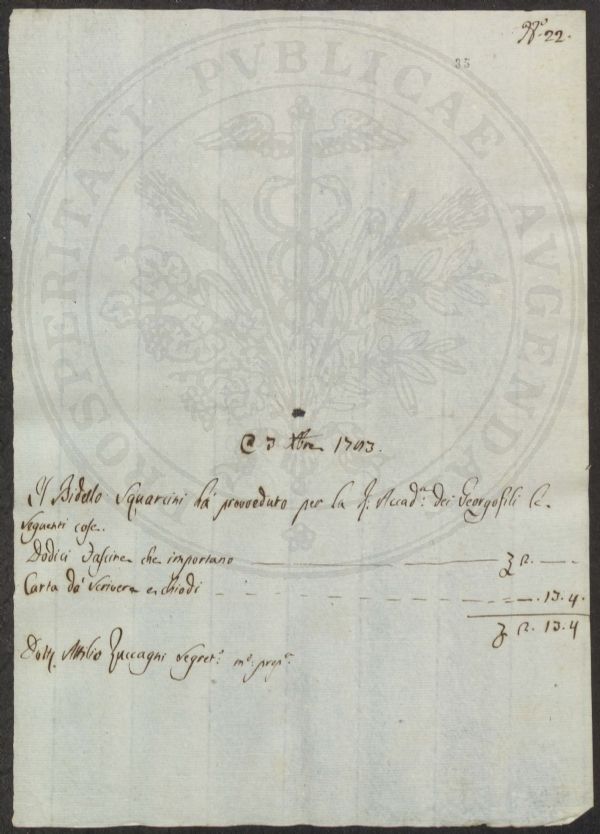 N.° 22.
35
PROSPERITATI PVBLICAE AVGENDAE
@ 3 Xbre 1793.
Il Bidello Squarcini ha' provveduto per la R. Accad.ª dei Georgofili le
seguenti cose.
Dodici Fascine che importano — 2. —
Carta da' scrivere e chiodi — . 13. 4.
2. 13. 4
Dott. Attilio Zuccagni Segret.° m.° prop.°